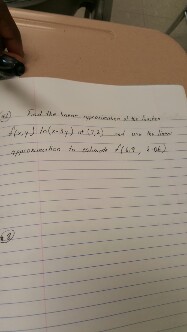 Find the linear approximation of the function
f(x,y) ln(x-3y) at (7,2) and use the linear
approximation to estimate f(6.9, 2.06)